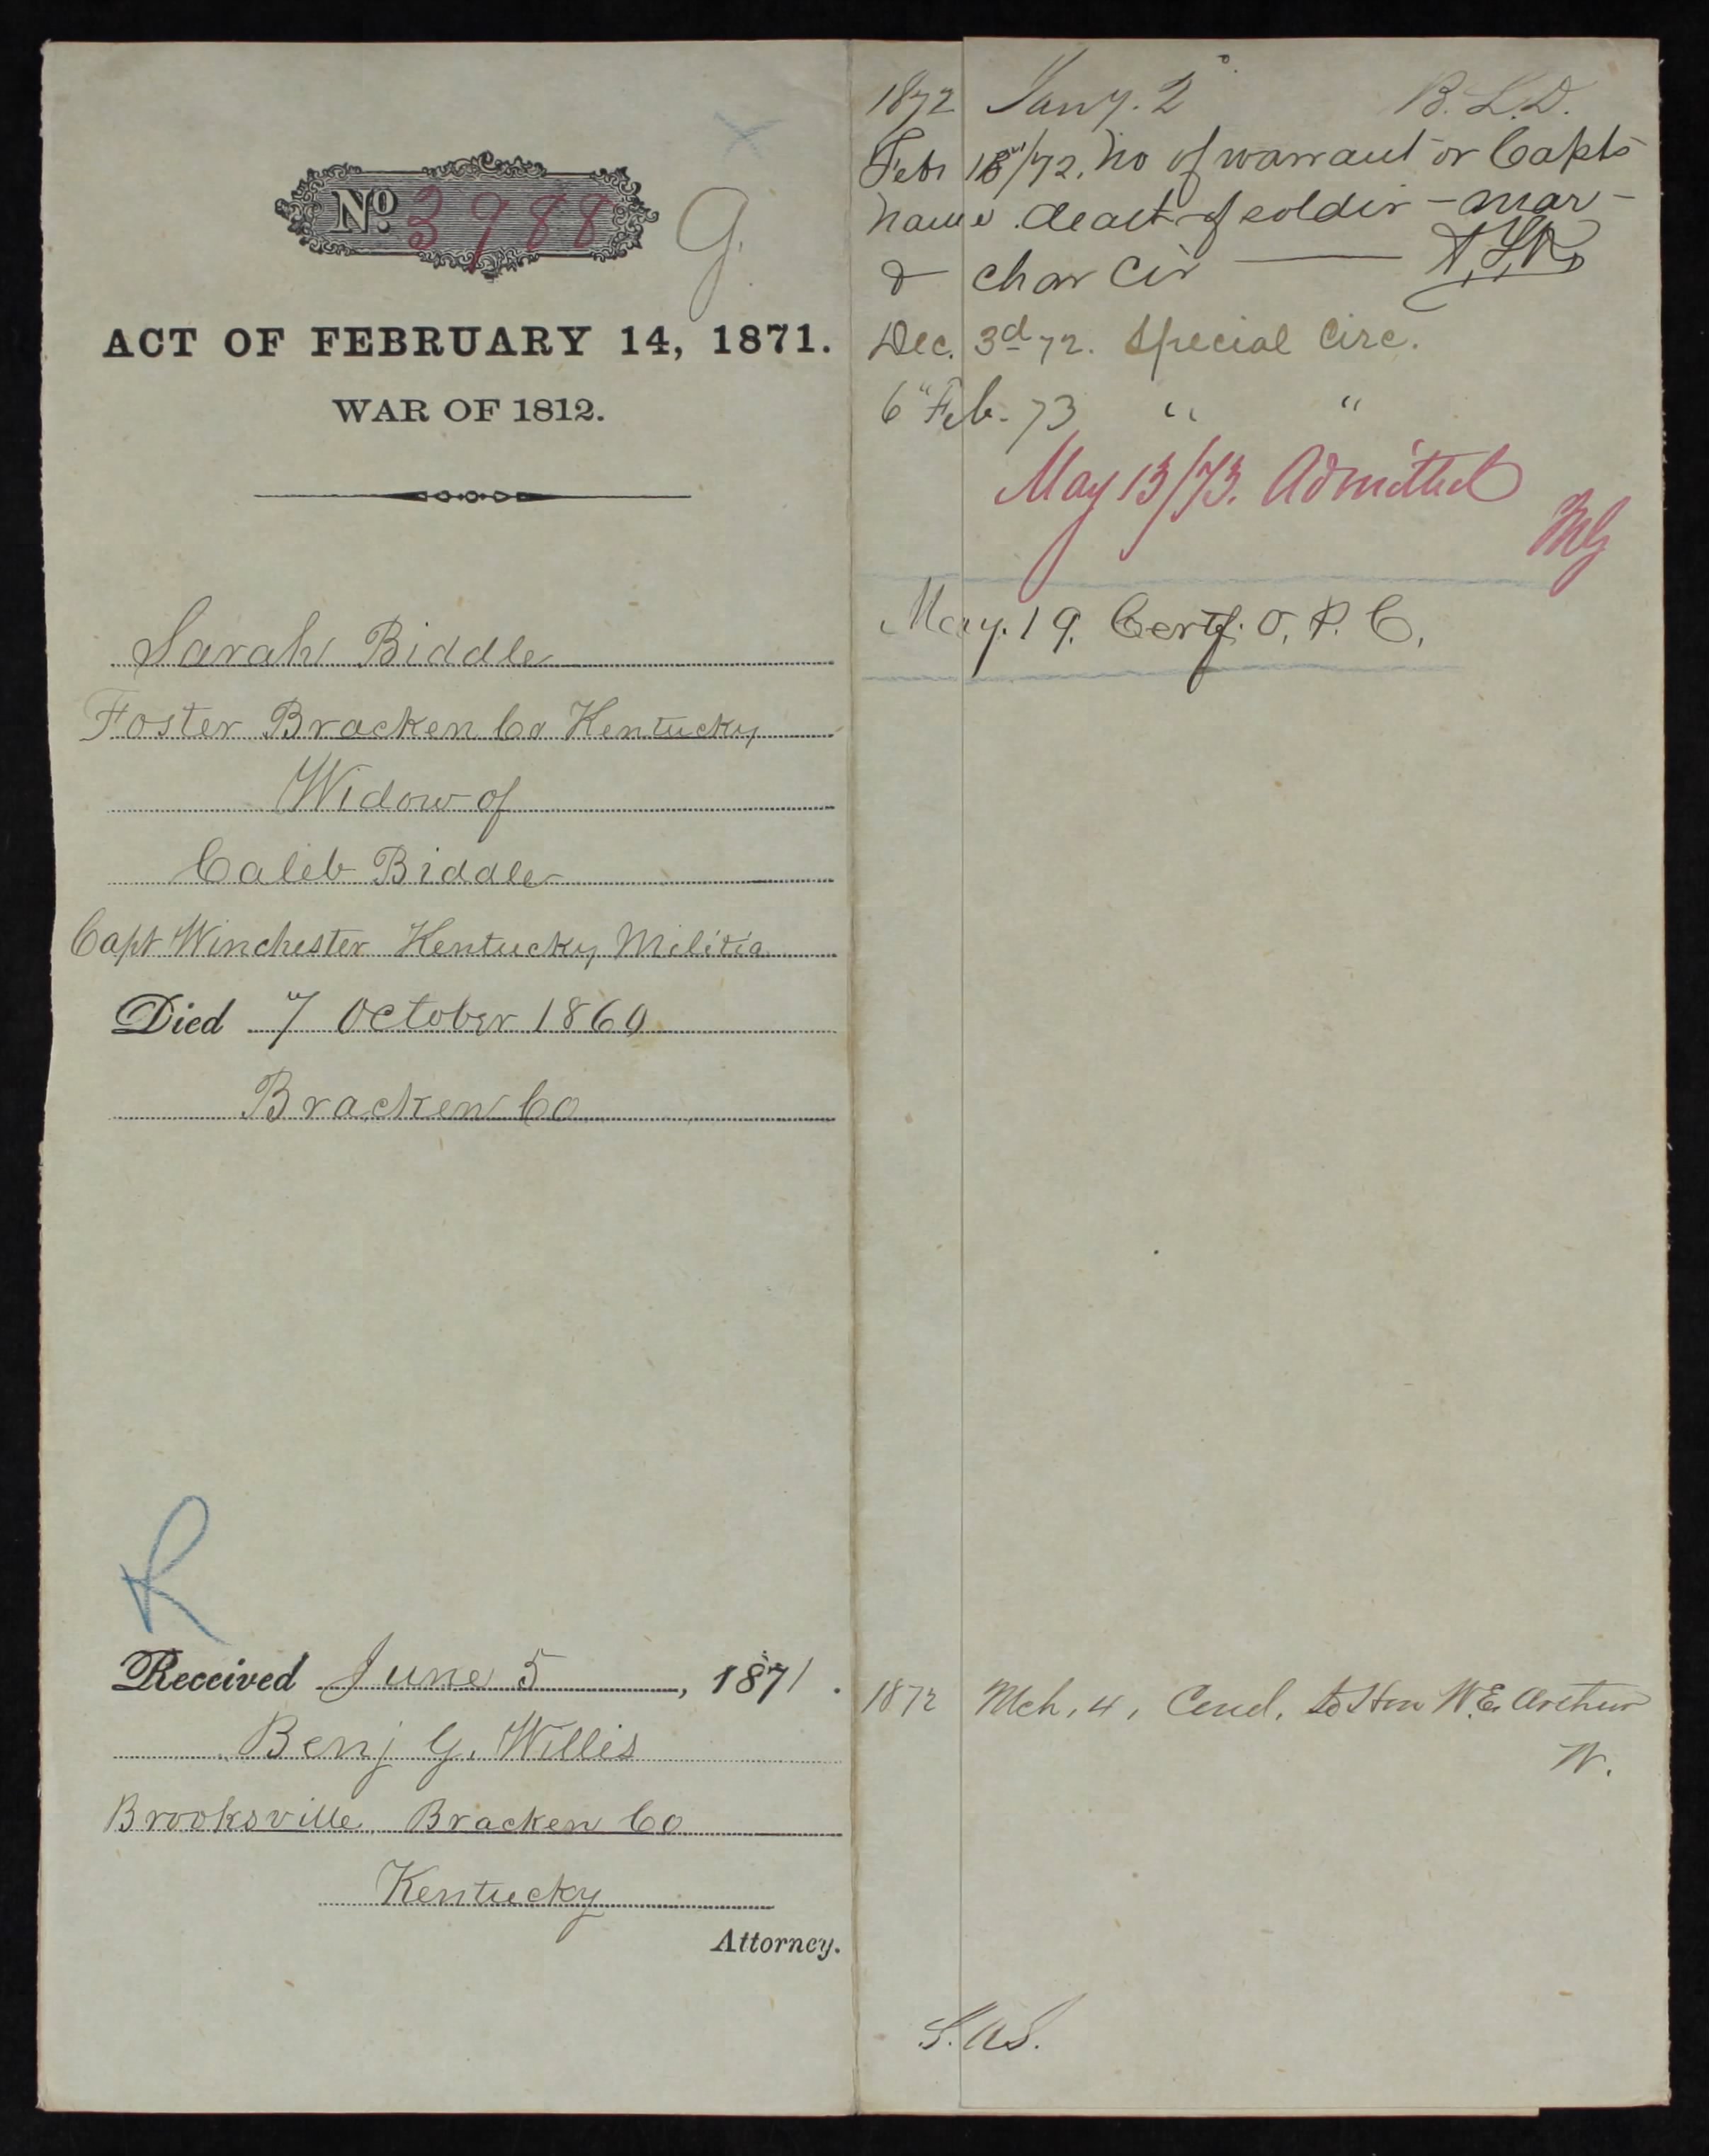 No. 3988
G.
ACT OF FEBRUARY 14, 1871.
WAR OF 1812.
Sarah Biddle
Foster Bracken Co Kentucky
Widow of
Caleb Biddle
Capt Winchester Kentucky Militia
Died 7 October 1860
Bracken Co
R
Received June 5, 1871.
Benj G. Willis
Brooksville Bracken Co
Kentucky
Attorney.
1872 Jany. 2 B.L.D.
Feb 18/72. No of warrant or Capts
name. deact of soldir - mar -
& char Cir
Dec. 3d 72. Special Circ.
6" Feb. 73 " "
May 13/73. Admitted
May. 19. Certf. O. P. C.
1872 Mch. 4, Cond. to Hon W.E. Arthur
W.
S.